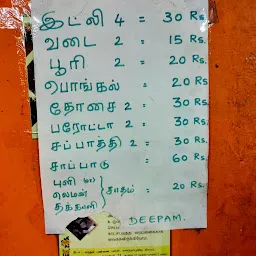 இட்லி 4 = 30 Rs.
வடை 2 = 15 Rs.
பூரி 2 = 20 Rs.
பொங்கல் = 20 Rs.
தோசை 2 = 30 Rs.
பரோட்டா 2 = 30 Rs.
சப்பாத்தி 2 = 30 Rs.
சாப்பாடு = 60 Rs.
புளி (or)
லெமன் } சாதம் : 20 Rs.
தக்காளி
DEEPAM.